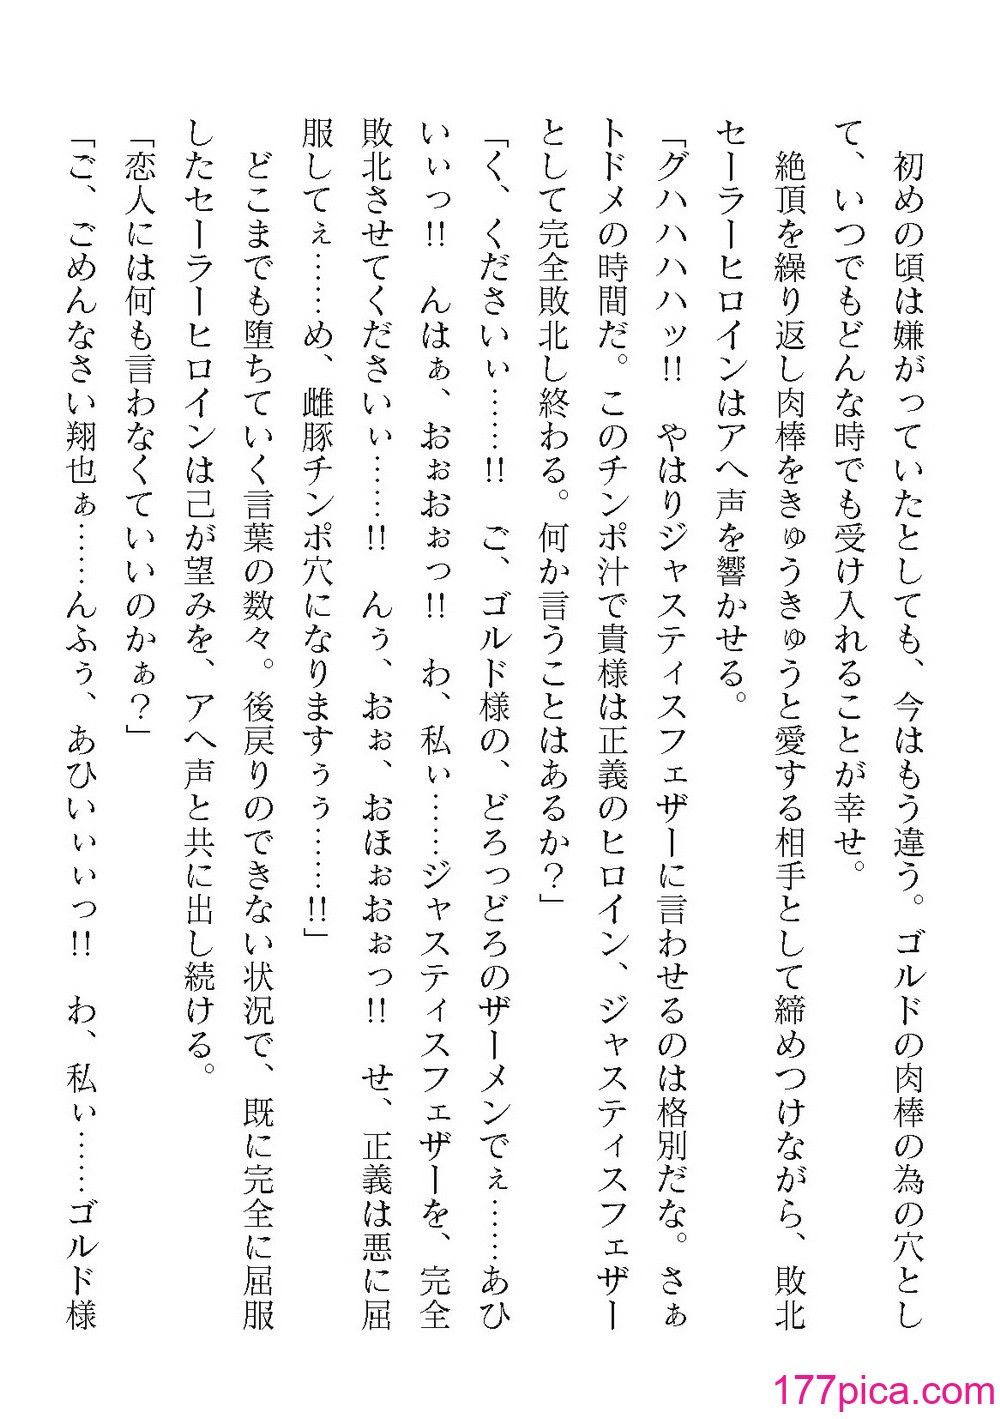 初めの頃は嫌がっていたとしても、今はもう違う。ゴルドの肉棒の為の穴とし
て、いつでもどんな時でも受け入れることが幸せ。
絶頂を繰り返し肉棒をきゅうきゅうと愛する相手として締めつけながら、敗北
セーラーヒロインはアヘ声を響かせる。
「グハハハハッ!! やはりジャスティスフェザーに言わせるのは格別だな。さぁ
トドメの時間だ。このチンポ汁で貴様は正義のヒロイン、ジャスティスフェザー
として完全敗北し終わる。何か言うことはあるか？」
「く、くださいぃ……!! ご、ゴルド様の、どろっどろのザーメンでぇ……あひ
いぃっ!! んはぁ、おぉおぉっ!! わ、私ぃ……ジャスティスフェザーを、完全
敗北させてくださいぃ……!! んぅ、おぉ、おほぉおぉっ!! せ、正義は悪に屈
服してぇ……め、雌豚チンポ穴になりますぅぅ……!!」
どこまでも堕ちていく言葉の数々。後戻りのできない状況で、既に完全に屈服
したセーラーヒロインは己が望みを、アヘ声と共に出し続ける。
「恋人には何も言わなくていいのかぁ？」
「ご、ごめんなさい翔也ぁ……んふぅ、あひいぃぃっ!! わ、私ぃ……ゴルド様
177pica.com